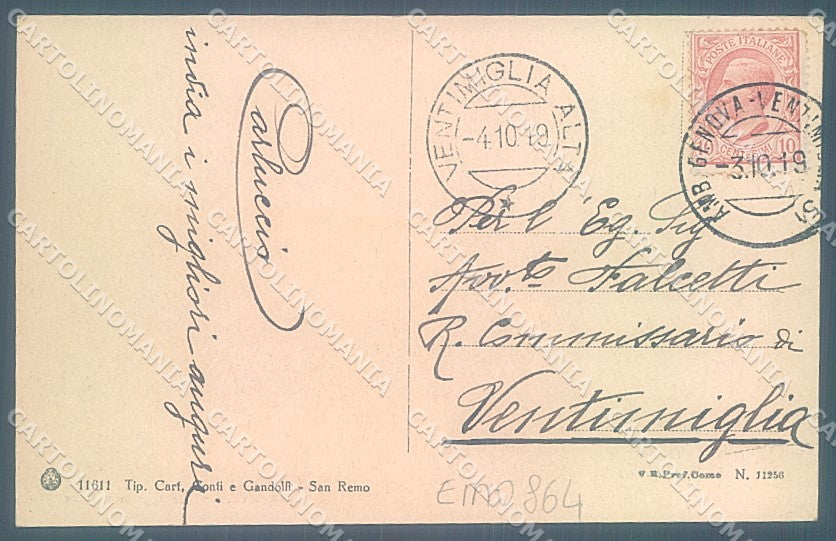 invia i migliori auguri
Carluccio
VENTIMIGLIA ALTA
-4.10.19
POSTE ITALIANE
CENTESIMI 10
AMB GENOVA-VENTIMIGLIA
-3.10.19
Per l Eg. Sig
Avv.to Falcetti
R. Commissario di
Ventimiglia
11611 Tip. Cart. Conti e Gandolfi - San Remo
V.R. Pref. Como N. 11256
864
CARTOLINOMANIA